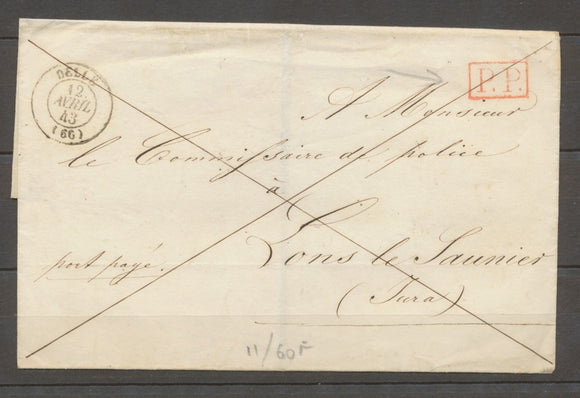 DELLE
12
AVRIL
43
(66)
P.P.
A Monsieur
le Commissaire de police
à
Lons le Saunier
port payé.
(Jura)
11/60F